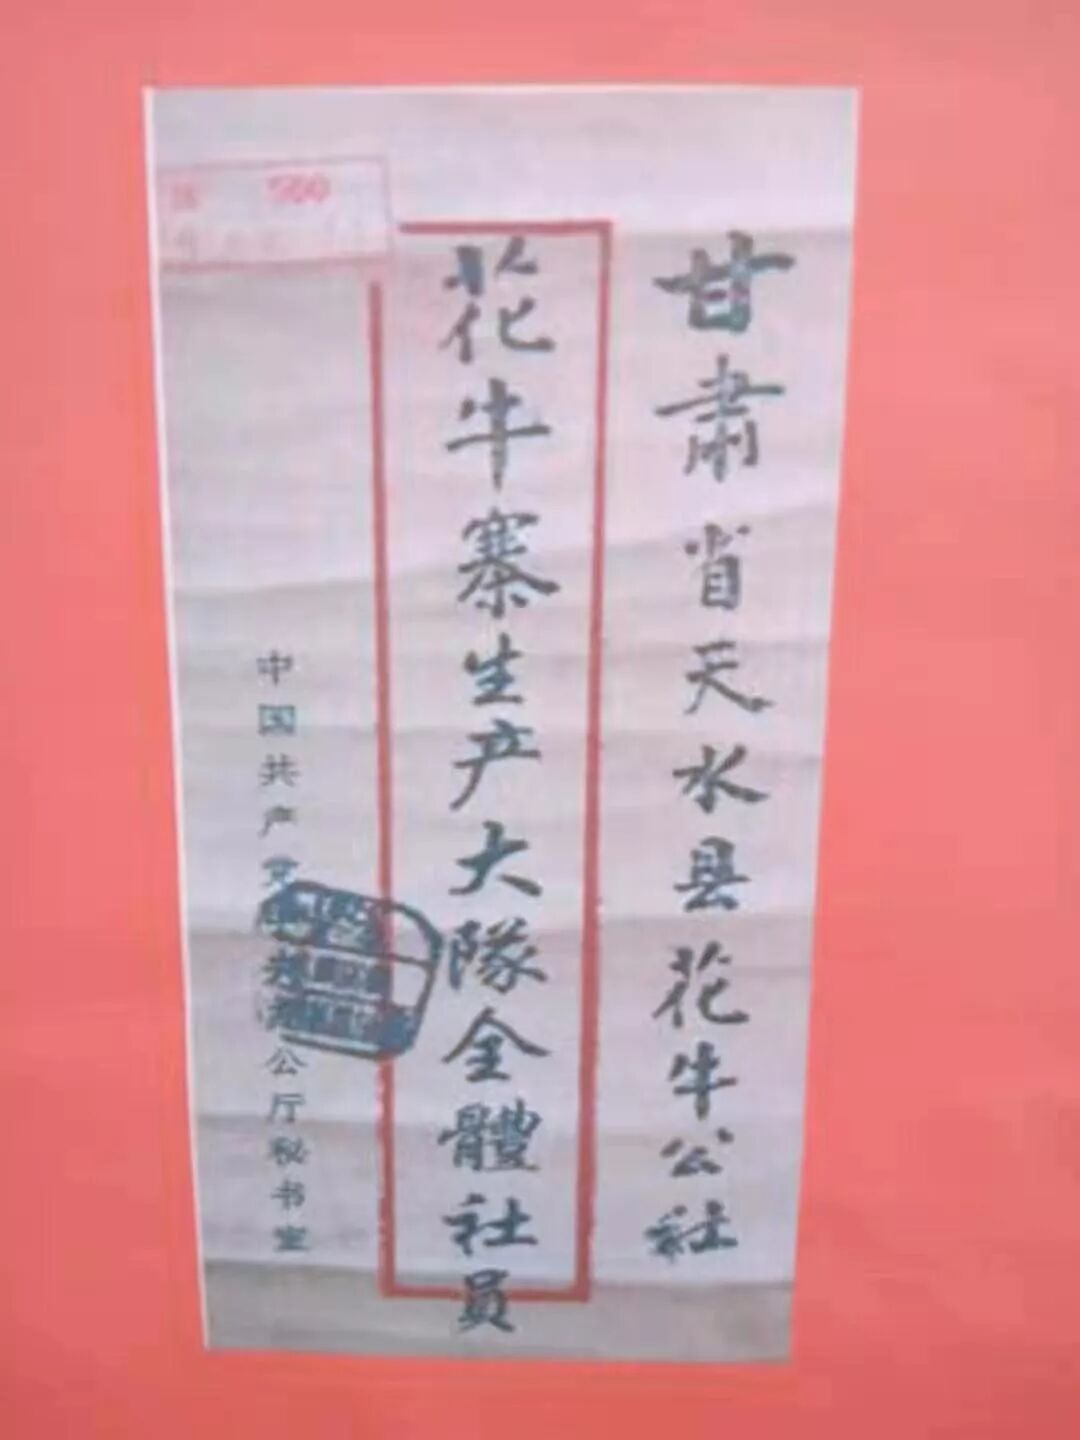 甘肃省天水县花牛公社
花牛寨生产大隊全體社員
中国共产党
公厅秘书室